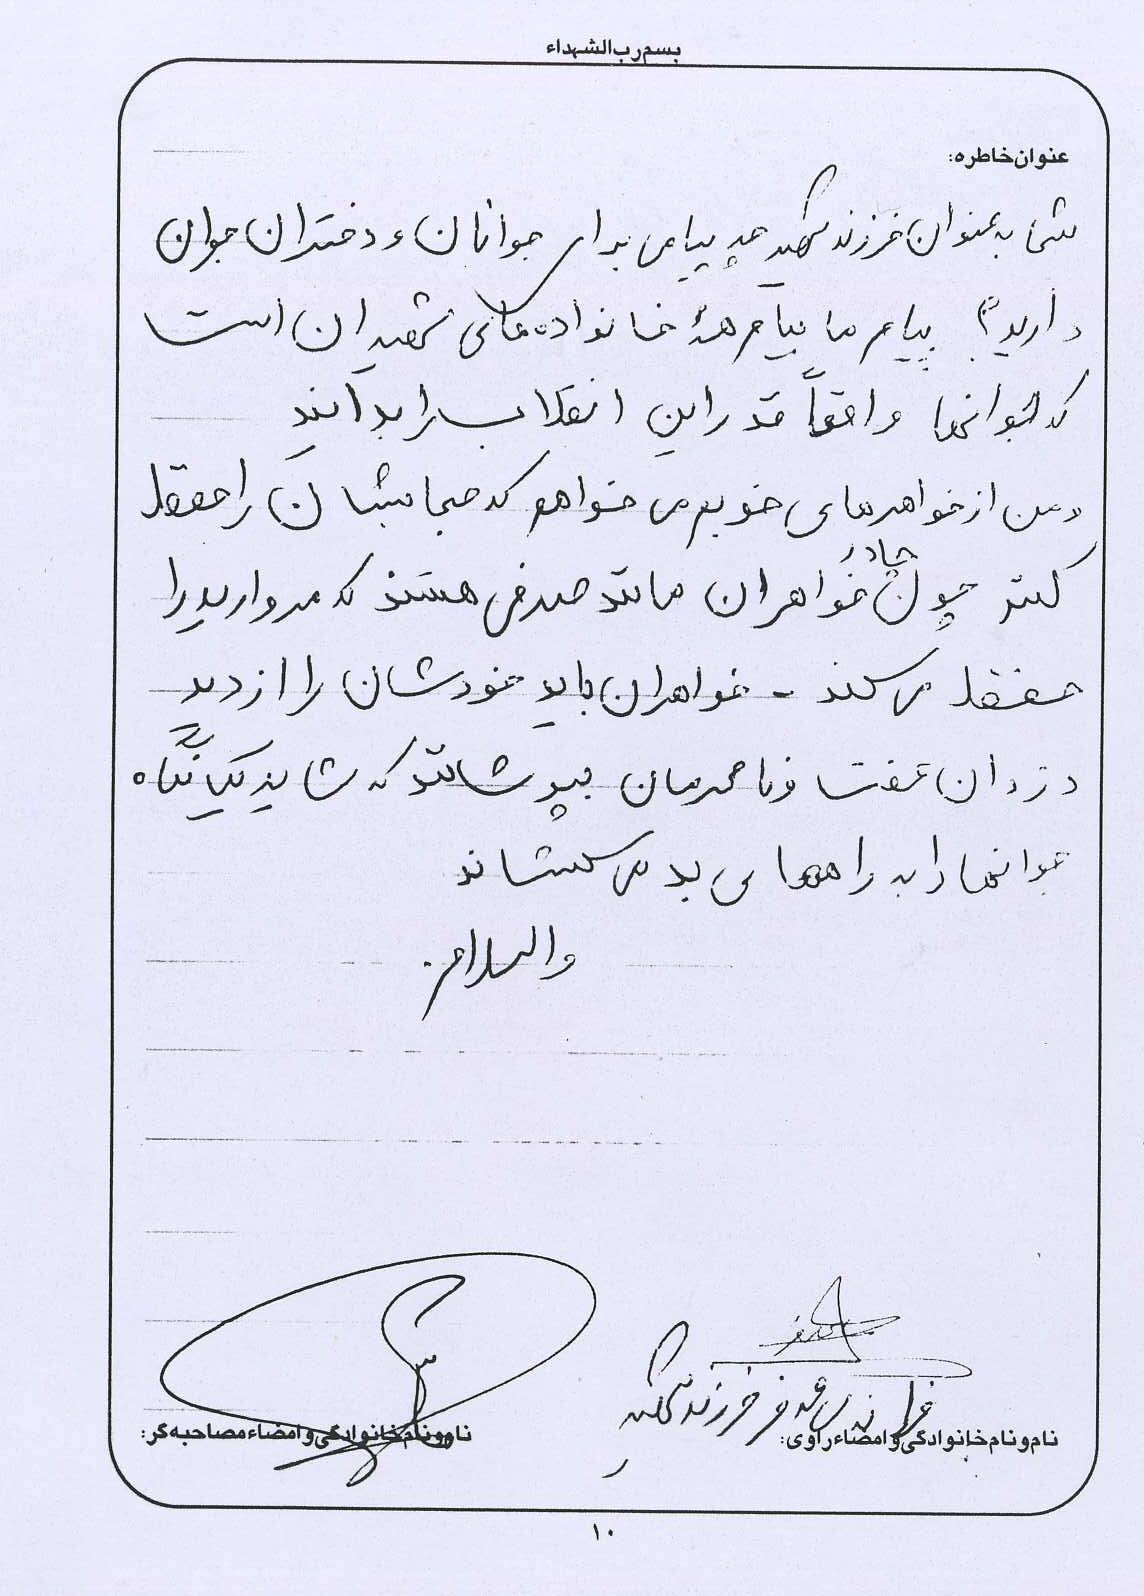 بسم رب الشهداء
عنوان خاطره:
شما به عنوان فرزند شهید چه پیامی برای جوانان و دختران جوان
دارید؟ پیام ما پیام همهٔ خانواده‌های شهیدان است
که واقعاً قدر این انقلاب را بدانند
و من از خواهرهای خوبم می خواهم که حجابشان را حفظ
کنند چون چادر خواهران مانند صدفی هستند که مروارید را
حفظ می کند - خواهران باید خودشان را از دید
دزدان عفت و نامحرمان بپوشانند که شاید یک نگاه
جوانها را به راههای بد می کشاند
والسلام.
فرزند شهید
نام و نام خانوادگی و امضاء راوی:
نام و نام خانوادگی و امضاء مصاحبه گر:
۱۰